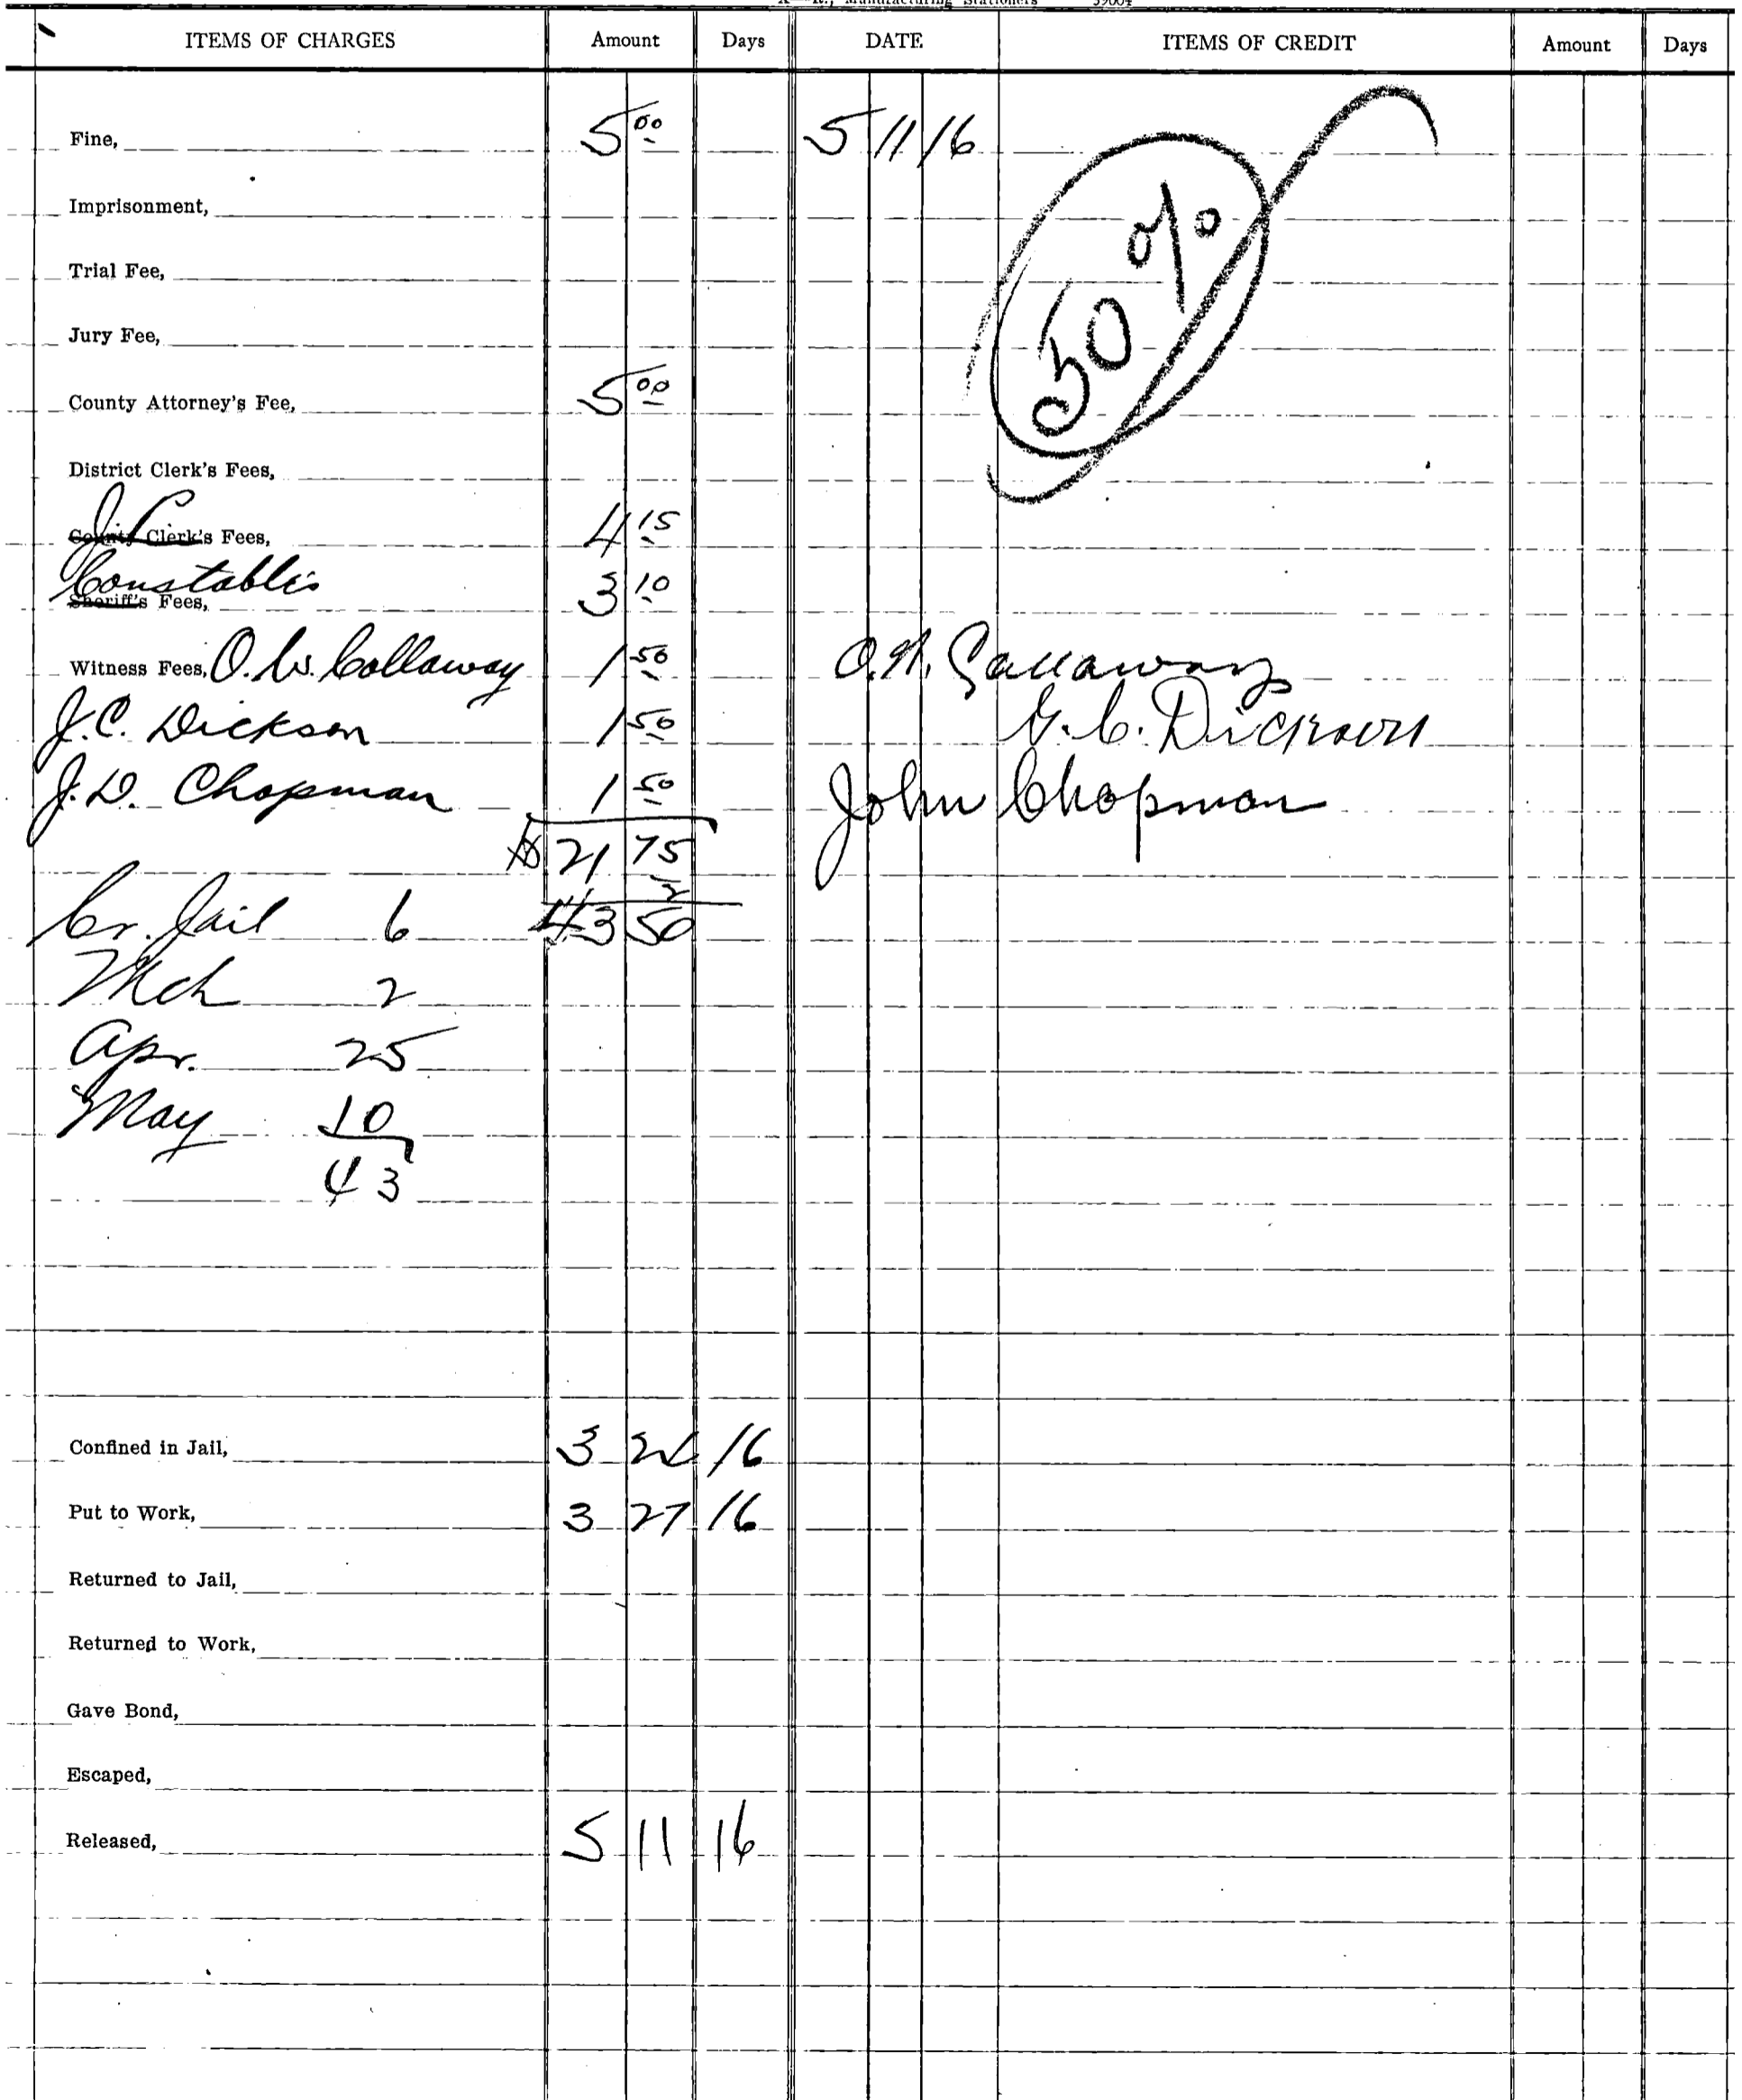 Manufacturing Stationers
ITEMS OF CHARGES Amount Days DATE ITEMS OF CREDIT Amount Days
Fine, 5 00 5 11 16
50%
Imprisonment,
Trial Fee,
Jury Fee,
County Attorney's Fee, 5 00
District Clerk's Fees,
J.P.
County Clerk's Fees, 4 15
Constable's
Sheriff's Fees, 3 10
Witness Fees, O.W. Callaway 1 50 O.W. Callaway
J.C. Dickson 1 50 J.C. Dickson
J.D. Chapman 1 50 John Chapman
$ 21 75
2
Cr. Jail 6 43 50
Mch 2
Apr. 25
May 10
43
Confined in Jail, 3 16
Put to Work, 3 27 16
Returned to Jail,
Returned to Work,
Gave Bond,
Escaped,
Released, 5 11 16